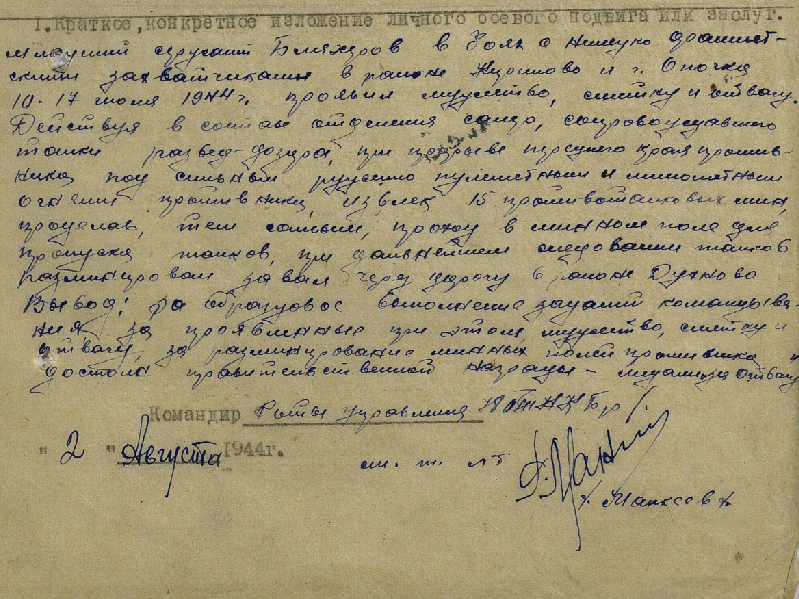 I. Краткое, конкретное изложение личного боевого подвига или заслуг.
Младший сержант в боях с немецко фашист-
скими захватчиками в районе и г. Опочка
10-17 июля 1944 г. проявил мужество, смётку и отвагу.
Действуя в составе отделения сапер, сопровождавшего
танки развед-дозора, при прорыве переднего края против-
ника под сильным ружейно пулеметным и минометным
огнем противника, извлек 15 противотанковых мин,
проделав, тем самым, проход в минном поле для
пропуска танков, при дальнейшем следовании танков
разминировал завал через дорогу в районе Духново
Вывод: за образцовое выполнение заданий командова-
ния за проявленные при этом мужество, смётку и
отвагу, за разминирование минных полей противника
достоин правительственной награды - медали "за отвагу"
Командир Роты управления 78 Бр
"2" Августа 1944г.
ст. т. лт